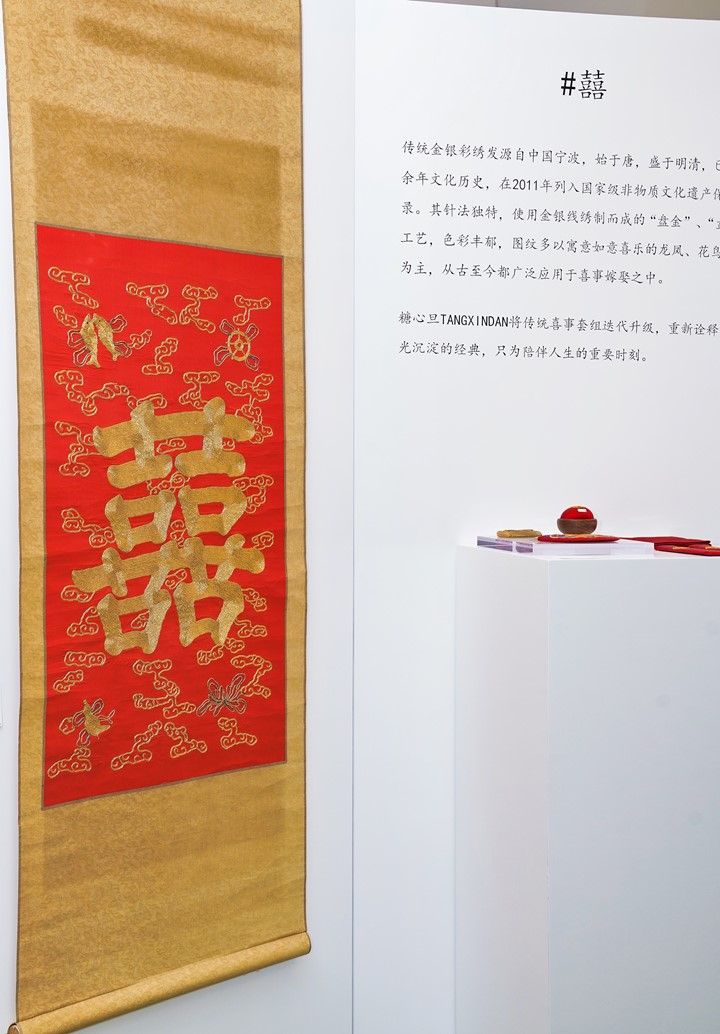 囍
#囍
传统金银彩绣发源自中国宁波，始于唐，盛于明清，已
余年文化历史，在2011年列入国家级非物质文化遗产保
录。其针法独特，使用金银线绣制而成的“盘金”、“
工艺，色彩丰郁，图纹多以寓意如意喜乐的龙凤、花鸟
为主，从古至今都广泛应用于喜事嫁娶之中。
糖心旦TANGXINDAN将传统喜事套组迭代升级，重新诠释
光沉淀的经典，只为陪伴人生的重要时刻。